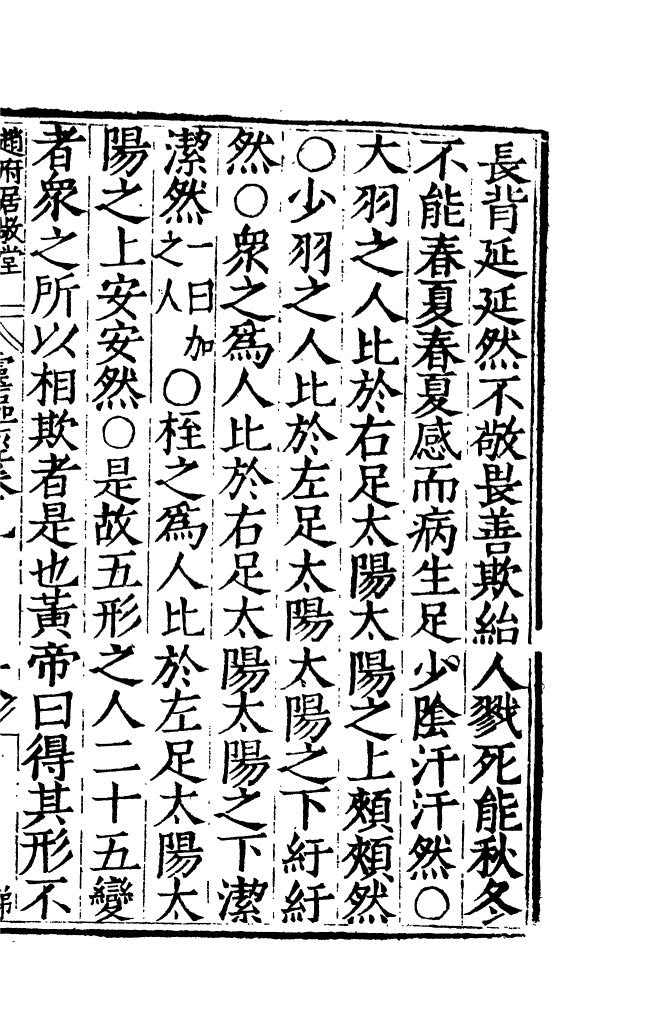 長背延延然不敬畏善欺紿人戮死能秋冬
不能春夏春夏感而病生足少陰汗汗然〇
大羽之人比於右足太陽太陽之上頰頰然
〇少羽之人比於左足太陽太陽之下紆紆
然〇衆之爲人比於右足太陽太陽之下潔
潔然一曰加之人〇桎之爲人比於左足太陽太
陽之上安安然〇是故五形之人二十五變
者衆之所以相欺者是也黃帝曰得其形不
趙府居敬堂